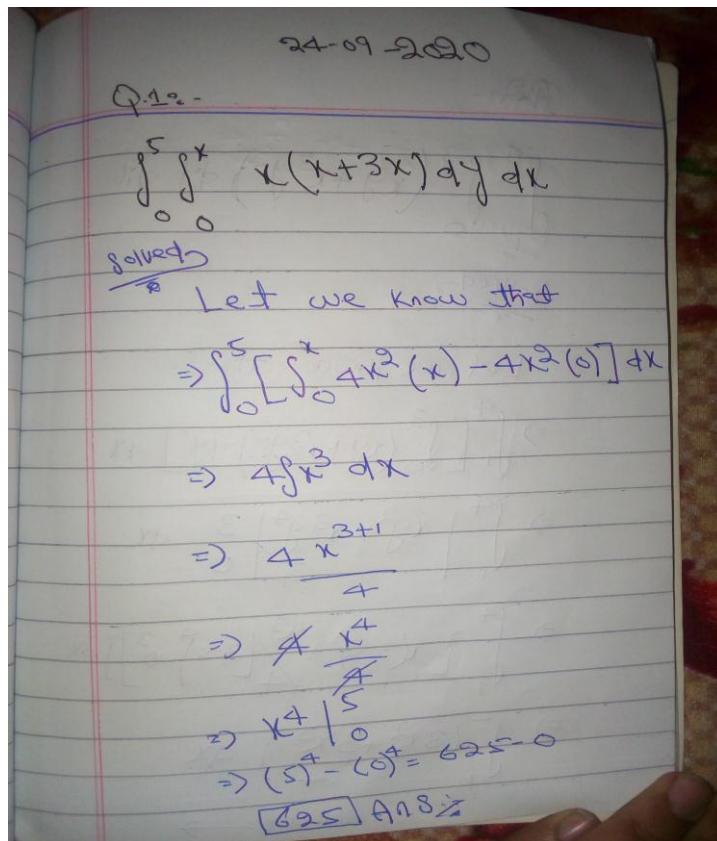 24-09-2020
Q.1:-
∫₀⁵ ∫₀ˣ x(x+3x) dy dx
Solved
Let we know that
⇒ ∫₀⁵ [∫₀ˣ 4x²(x) - 4x²(0)] dx
⇒ 4∫x³ dx
⇒ 4 x³⁺¹/4
⇒ 4 x⁴/4
⇒ x⁴ |₀⁵
⇒ (5)⁴ - (0)⁴ = 625-0
625 Ans